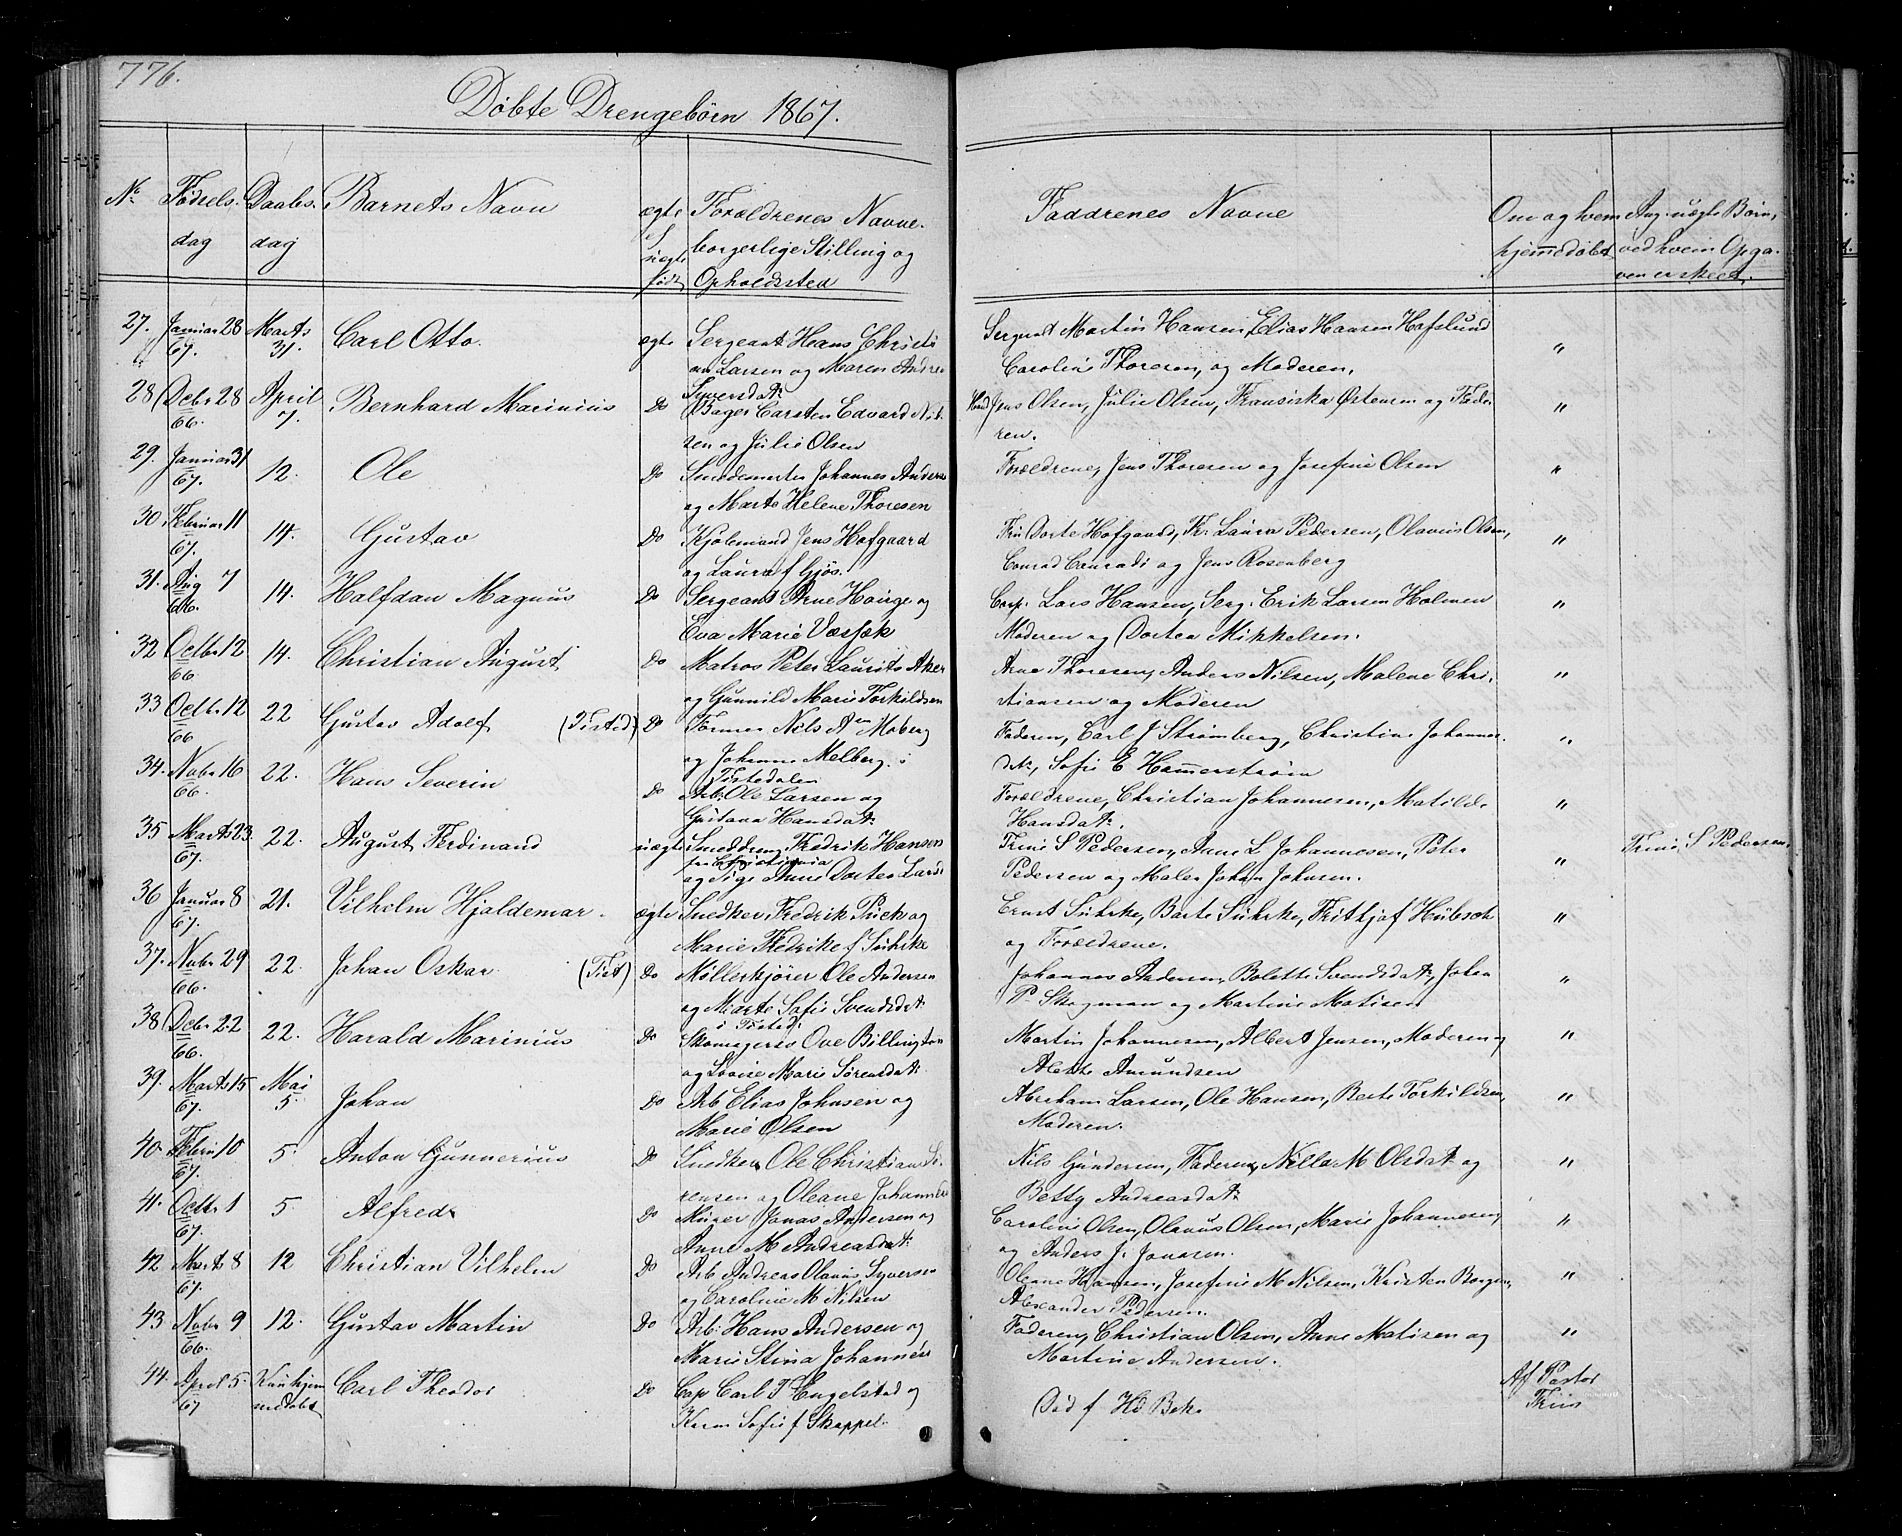 776.
Døbte Drengebørn 1867.
No Fødsels- dag Daabs- dag Barnets Navn ægte el uægte født Forældrenes Navne borgerlige Stilling og Opholdssted Faddrenes Navne Om og hvem hjemmedøbt Ang. uægte Børn, ved hvem Opga- ven er skeet.
27. Januar 28 67. Marts 31. Carl Otto. ægte Sergeant Hans Christi
an Larsen og Maren Andrea Syversdat Sergeant Martin Hansen, Elias Hansen Hafslund
Caroline Thoresen, og Moderen. "
28 Decbr 28 66. April 7. Bernhard Marinius Do Bager Carsten Edvard Nil-
sen og Julie Olsen Jens Olsen, Julie Olsen, Franciska Østensen og Fade-
ren. "
29. Januar 31 67. 12. Ole Do Smedemester Johannes Anders
og Marte Helene Thoresen Forældrene, Jens Thoresen og Josefine Olsen "
30 Februar 11 67. 14. Gustav Do Kjøbmand Jens Hofgaard
og Laura f Gjøs. Fru Dorte Hofgaard, Fr. Laura Pedersen, Olavus Olsen,
Conrad Conradi og Jens Rosenberg "
31. Aug 7 66. 14. Halfdan Magnus Do Sergeant Arne Hauge og
Eva Marie Væsfæk Corp. Lars Hansen, Serg. Erik Larsen Holmen
Moderen og Dortea Mikkelsen. "
32 Octbr 12 66 14. Christian August Do Matros Peter Laurits Aker
og Gunnild Marie Torkildsen Arne Thoresen, Anders Nilsen, Malene Chri-
stiansen og Moderen "
33 Octbr 12 66 22 Gustav Adolf (Tisted) Do Former Nels An Moberg
og Johanne Melberg. i
Tistedalen Faderen, Carl J Strømberg, Christine Johannes-
dat, Sofie E Hammerstrøm "
34. Novbr 16 66. 22. Hans Severin Do Arb. Ole Larsen og
Gustava Hansdat Forældrene, Christian Johannesen, Matilde
Hansdat. "
35 Marts 23 67. 22. August Ferdinand uægte Smeddreng Fredrik Hansen
fra Christiania
og Pige Anne Dortea Larsd Trine S Pedersen, Anne L Johannesen, Peter
Pedersen og Maler Johan Johnsen. " Trine S Pedersen.
36 Januar 8 67. 21. Vilhelm Hjaldemar. ægte Snedker Fredrik Pück og
Marie Fredrike f Suhrke Ernst Suhrke, Barte Suhrke, Frithjof Hübsch
og Forældrene. "
37. Novbr 29 66. 22. Johan Oskar (Tist) Do Møllerkjører Ole Andersen
og Marte Sofie Svendsdat
i Tisted. Johannes Andersen, Bolette Svendsdat, Johan
P. Skogman og Martine Matisen "
38 Decbr 22 66. 22. Harald Marinius Do Skomagersv Ove Billington
og Lovise Marie Sørensdat Martin Johannesen, Albert Jensen, Moderen og
Alette Amundsen "
39. Marts 15 67. Mai 5. Johan Do Arb Elias Johnsen og
Marie Olsen Abraham Larsen, Ole Hansen, Berte Torkildsen,
Moderen. "
40. Febru 10 67. 5. Anton Gunnerius Do Snedker Ole Christian Sø-
rensen og Oleane Johannesd Nils Gundersen, Faderen, Nilla M Olsdat og
Betty Andreasdat "
41. Octbr 1 67. 5. Alfred Do Murer Jonas Andersen og
Anne M Andreasdat Caroline Olsen, Olavus Olsen, Marie Johannesen,
og Anders J. Jonasen. "
42 Marts 8 67. 12 Christian Vilhelm Do Arb Andreas Olavus Syversen
og Caroline M Nilsen Oleane Hansen, Josefine M Nilsen, Kristen Borgen,
Alexander Pedersen. "
43. Novbr 9 66. 12. Gustav Martin Do Arb. Hans Andersen og
Marie Stina Johannesd Faderen, Christian Olsen, Anne Matisen og
Martine Andersen. "
44. April 5. 67 Kun hjem medøbt Carl Theodor Do Cap Carl T Engelstad og
Karen Sofie f Skappel. Død f Hd. Bek. Af Pastor
Friis